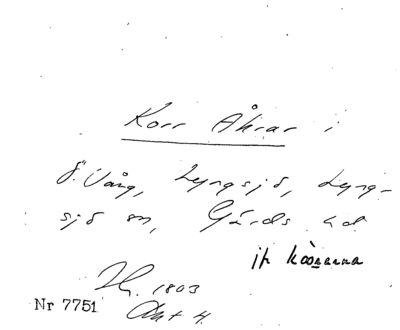 Korr Åkrar i
Ö. Vång, Lyngsjö, Lyng-
sjö sn, Gärds hd
jfr
1803
Akt 4.
Nr 7751